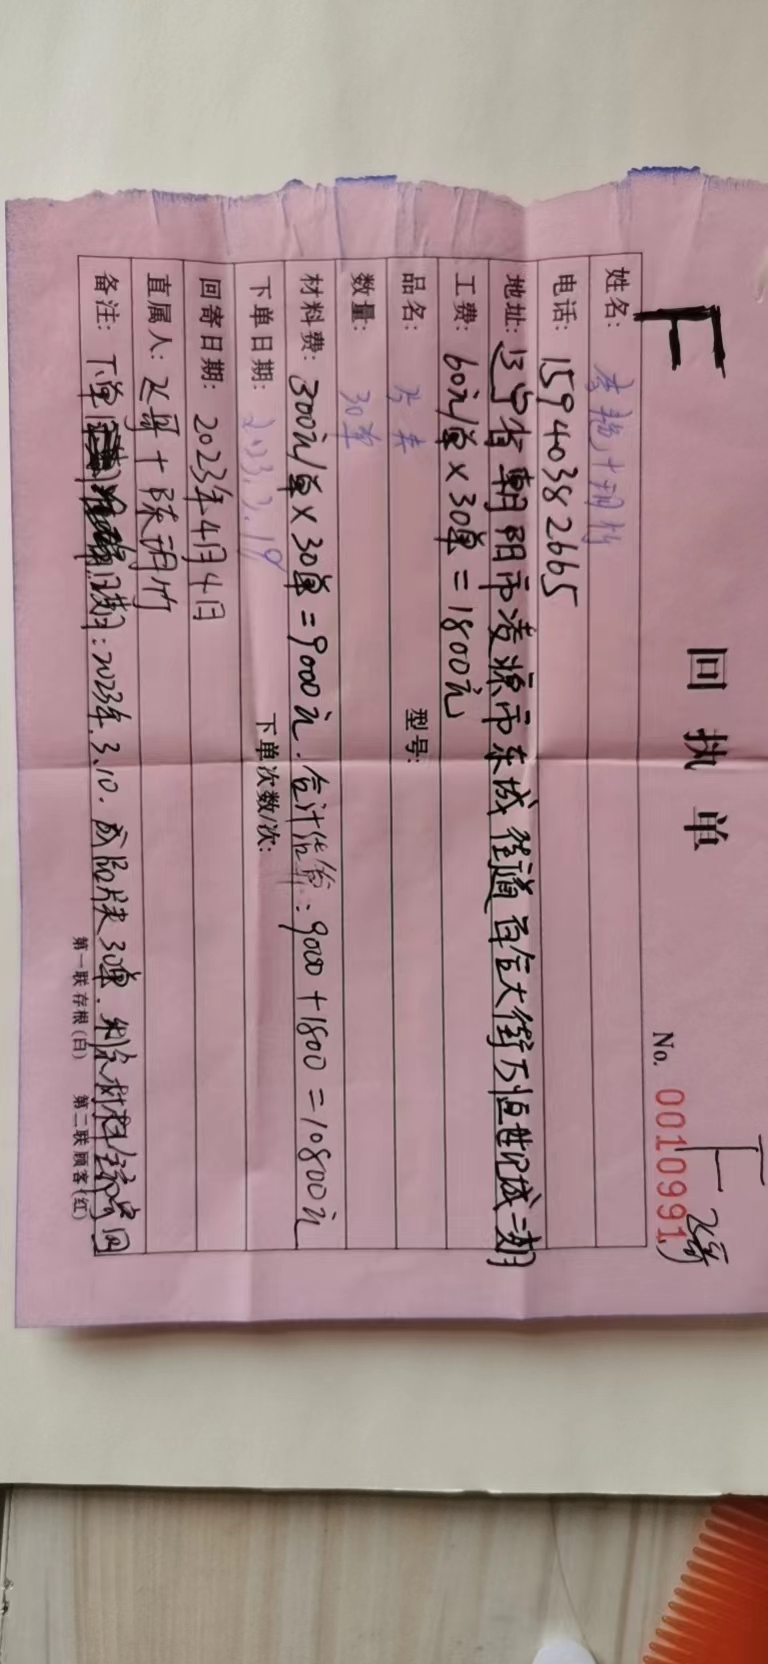 F
F 飞哥
回执单
No. 0010991
姓名:
电话: 15940382665
地址: 辽宁省朝阳市凌源市东城街道百合大街万恒世纪城二期
工费: 60元/单×30单=1800元
品名: 型号:
数量: 30单
材料费: 300元/单×30单=9000元. 合计估算: 9000+1800=10800元
下单日期: 2023.3.19 下单次数/次:
回寄日期: 2023年4月4日
直属人: 飞哥+陈润竹
备注: 下单 日期: 2023年.3.10. 成品片夹30单. 材料全部寄回
第一联存根(白) 第二联顾客(红)